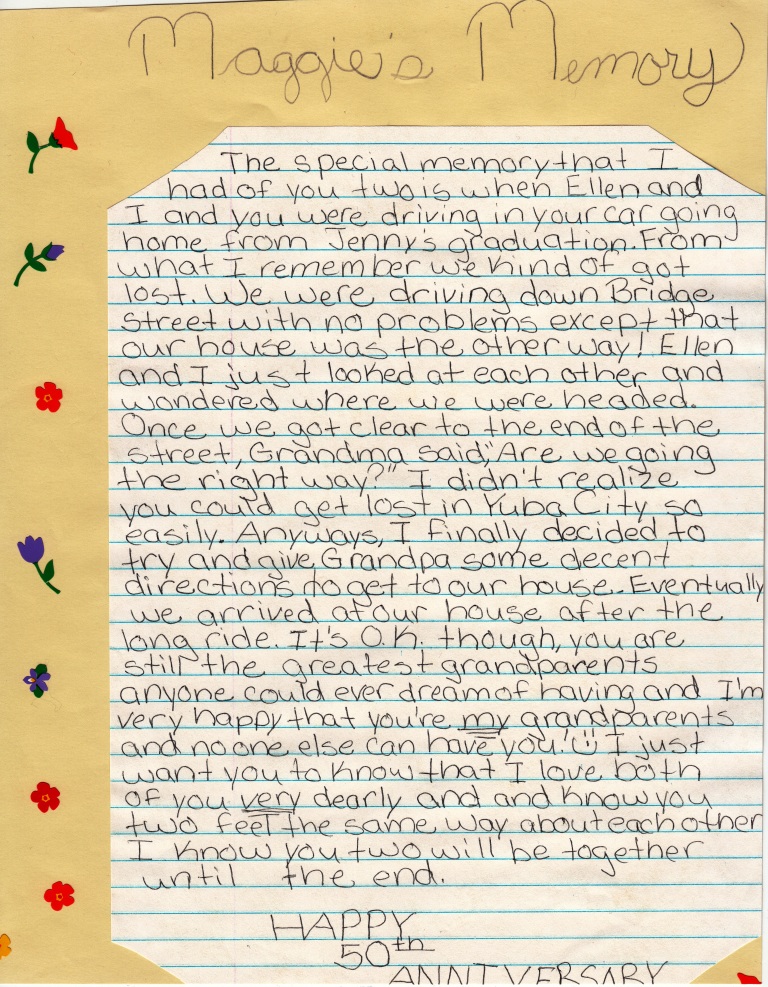 Maggie's Memory
The special memory that I
had of you two is when Ellen and
I and you were driving in your car going
home from Jenny's graduation. From
what I remember we kind of got
lost. We were driving down Bridge
Street with no problems except that
our house was the other way! Ellen
and I just looked at each other and
wondered where we were headed.
Once we got clear to the end of the
street, Grandma said, "Are we going
the right way?" I didn't realize
you could get lost in Yuba City so
easily. Anyways, I finally decided to
try and give Grandpa some decent
directions to get to our house. Eventually
we arrived at our house after the
long ride. It's O.K. though, you are
still the greatest grandparents
anyone could ever dream of having and I'm
very happy that you're my grandparents
and no one else can have you! I just
want you to know that I love both
of you very dearly and and know you
two feel the same way about each other
I know you two will be together
until the end.
HAPPY
50th
ANNIVERSARY